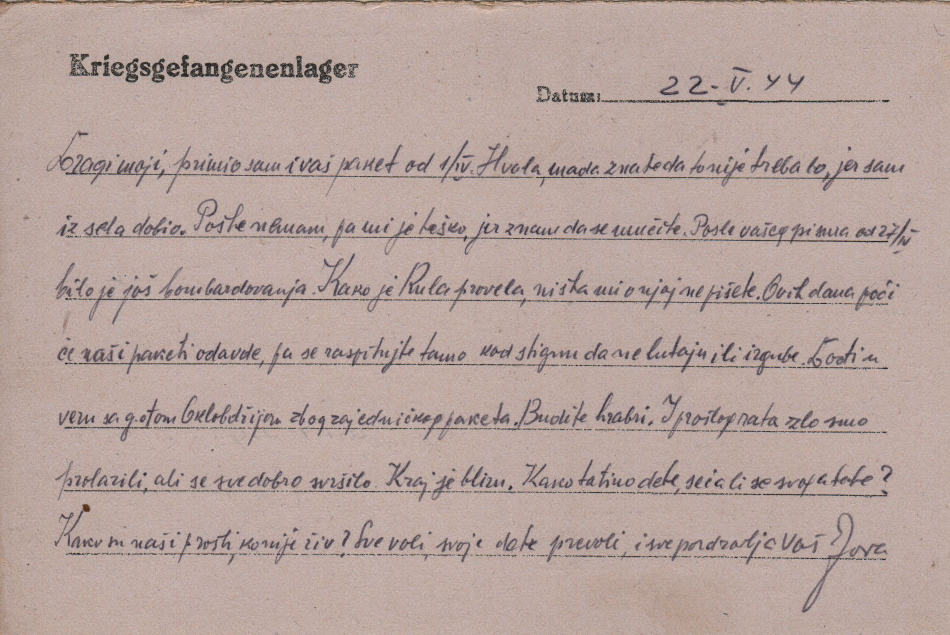 Kriegsgefangenenlager
Datum: 22-V. 44
Dragi moji, primio sam i vaš paket od 1/IV. Hvala, mada znate da to nije trebalo, jer sam
iz sela dobio. Pošte nemam, pa mi je teško, jer znam da se mučite. Posle vašeg pisma od 27/IV
bilo je još bombardovanja. Kako je Rula provela, ništa mi o njoj ne pišete. Ovih dana poći
će naši paketi odavde, pa se raspitujte tamo kod stignu da ne lutaju ili izgube.
vezu sa g-đom Oklobdžijom zbog zajedničkog paketa. Budite hrabri. I prošlog rata zlo smo
prolazili, ali se sve dobro svršilo. Kraj je blizu. Kako tatino dete, seća li se svoga tate?
Kako su naši prošli, ko nije živ? Sve voli, svoje dete prevoli, i sve pozdravlja Vaš Jova